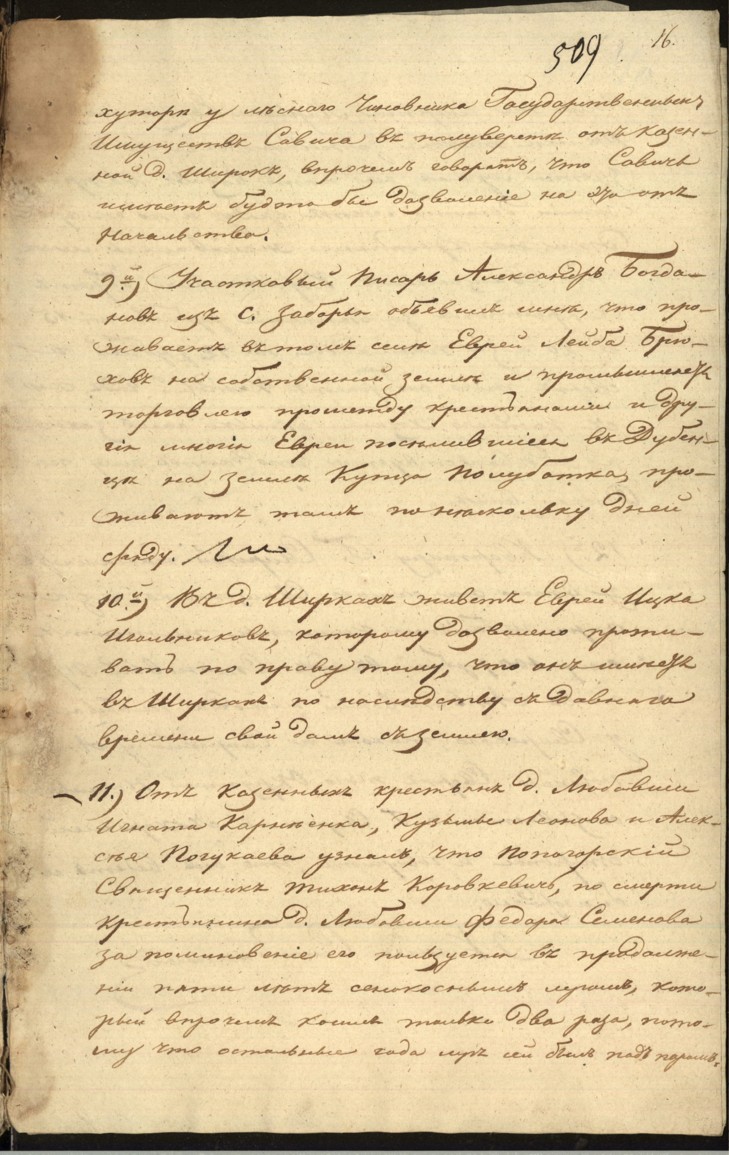 509 16.
хуторѣ у лѣснаго Чиновника Государственныхъ
Имуществъ Савича въ полуверстѣ отъ казен-
ной д. Широкъ, впрочемъ говорятъ, что Савичь
имѣетъ будто бы дозволеніе на это отъ
Начальства.
9.й) Участковый Писарь Александръ Богда-
новъ изъ с. Заборья объявилъ мнѣ, что про-
живаетъ въ томъ селѣ Еврей Лейба Брю-
ховъ на собственной землѣ и промышляетъ
торговлею промежду крестьянами и дру-
гіе многіе Евреи поселившіеся въ Дубен-
цѣ на землѣ Купца Полубатка, про-
живаютъ тамъ по нѣскольку дней
сряду.
10.й) Въ д. Ширкахъ живетъ Еврей Ицка
Игольниковъ, которому дозволено прожи-
вать по праву тому, что онъ имѣетъ
въ Ширкахъ по наслѣдству съ давняго
времени свой домъ съ землею.
11.) Отъ казенныхъ крестьянъ д. Любавши
Игната Карнѣенка, Кузьмы Леонова и Алек-
сѣя Погукаева узналъ, что Попогорскій
Священникъ Тихонъ Коровкевичь, по смерти
крестьянина д. Любавши Федора Семенова
за поминовеніе его пользуется въ продолже-
ніи пяти лѣтъ сенокоснымъ лугомъ, кото-
рый впрочемъ косилъ только два раза, пото-
му что остальные года лугъ сей былъ подъ паромъ,